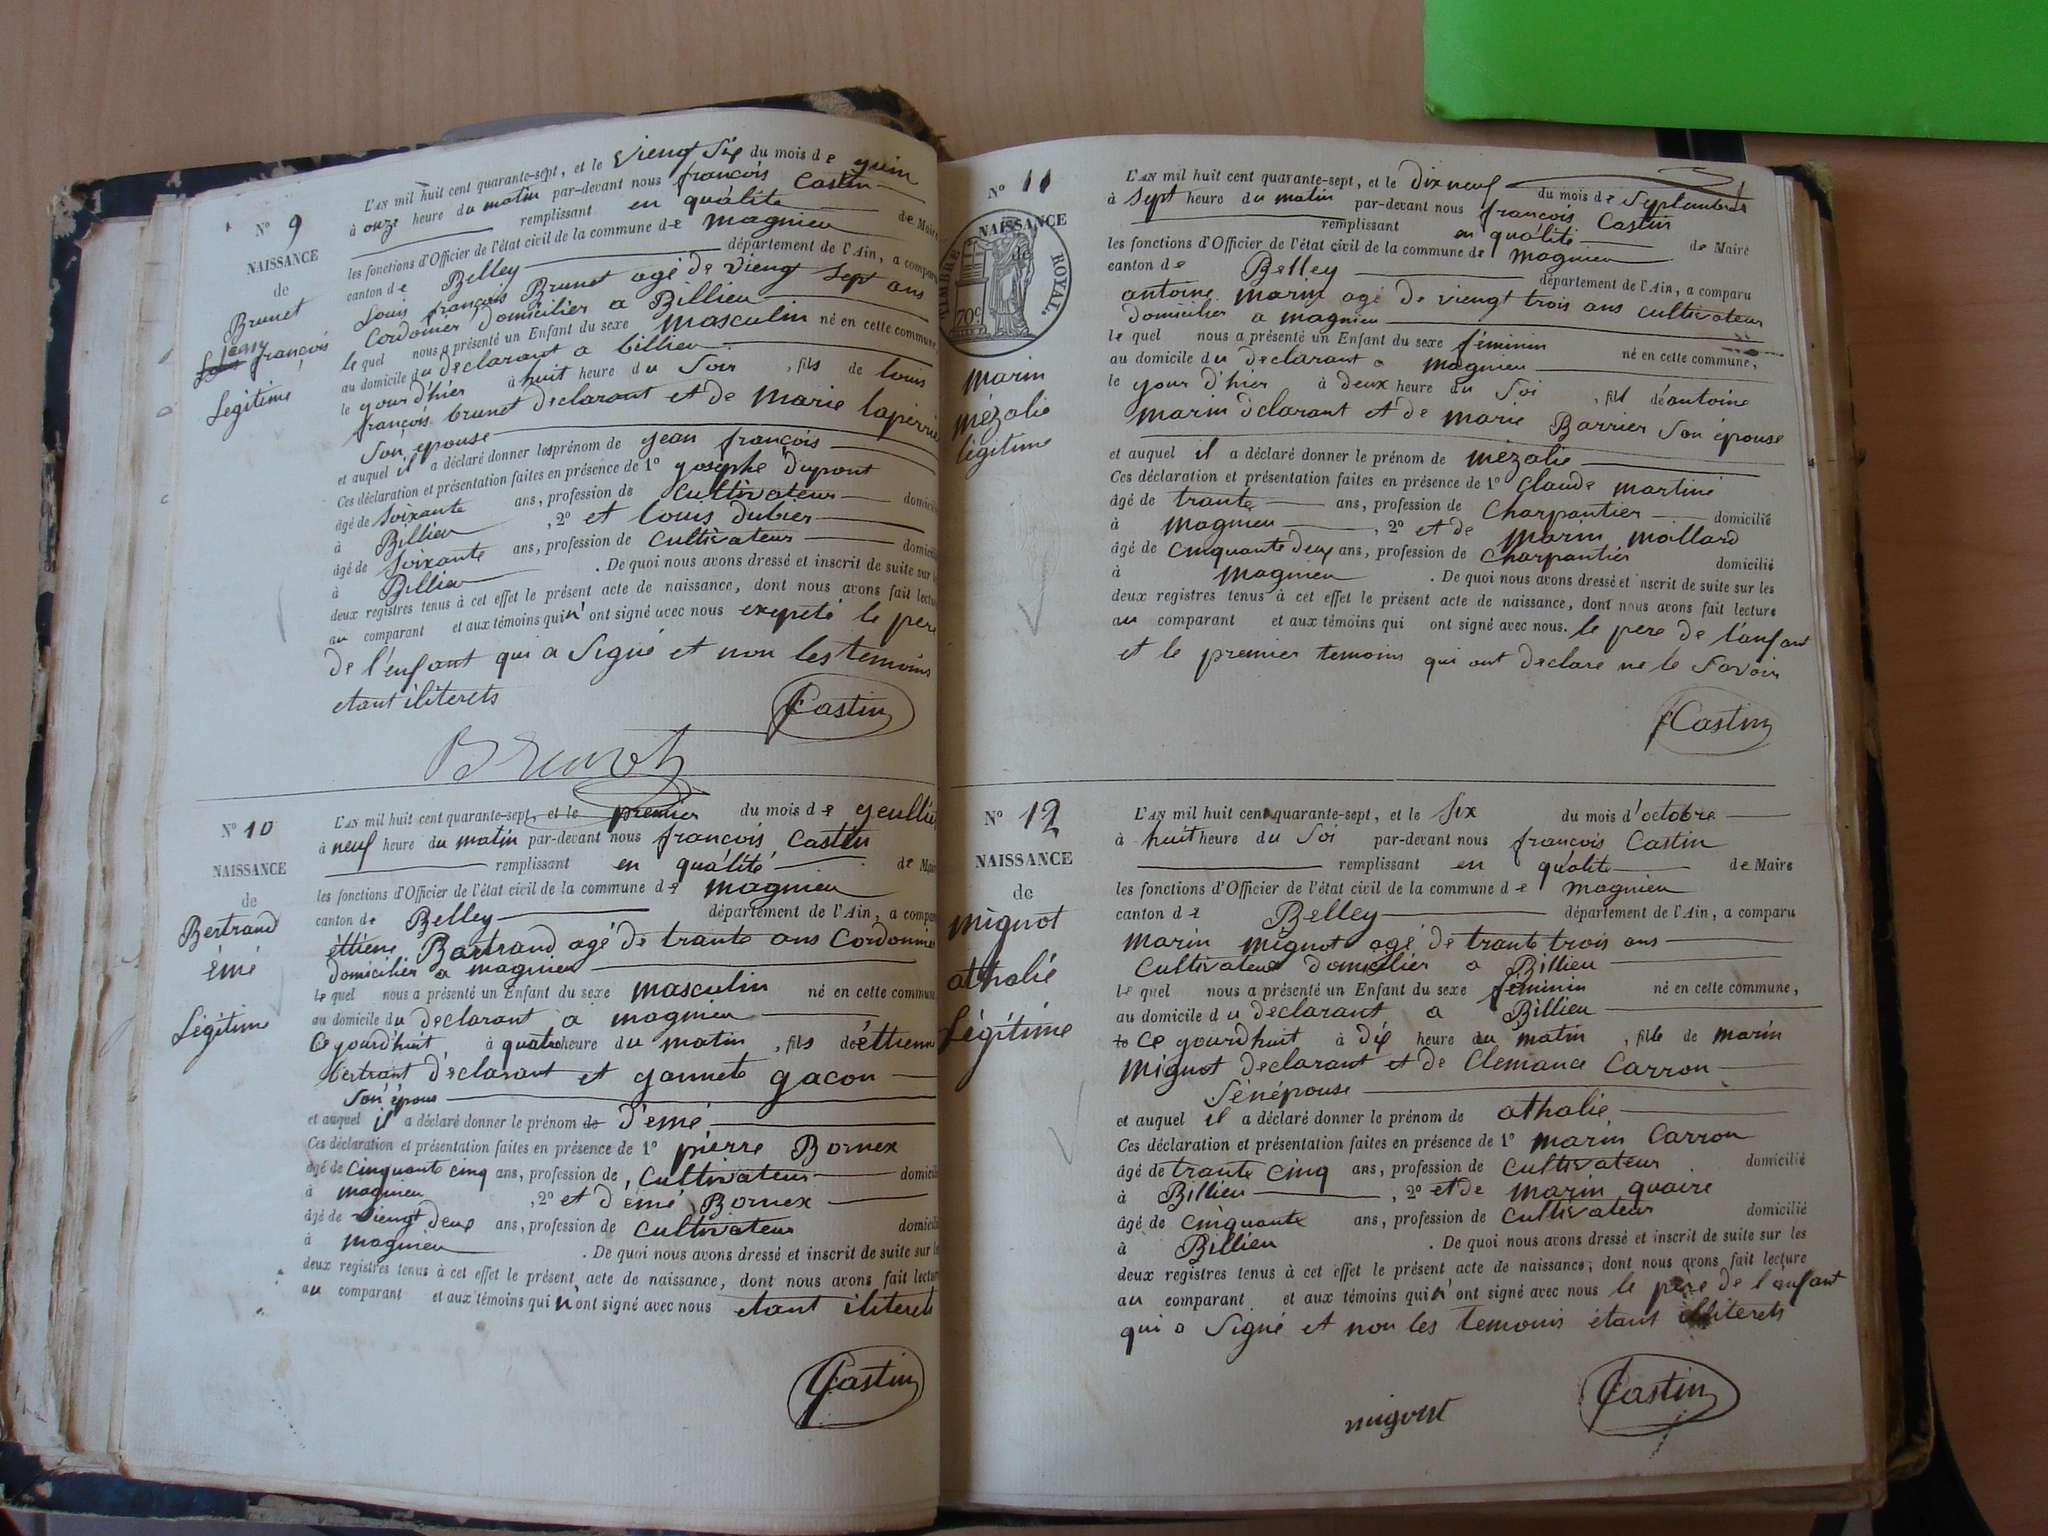 N° 9
NAISSANCE
de
Brunet
jean
françois
Legitime
L'AN mil huit cent quarante-sept, et le viengt Six du mois de yuin
à onze heure du matin par-devant nous françois Castin
remplissant en quálité de Maire
les fonctions d'Officier de l'état civil de la commune de magnieu
canton de Belley département de l'Ain, a comparu
Louis françois Brunet agé de viengt sept ans
Cordonier domicilier a Billieu
le quel nous a présenté un Enfant du sexe masculin né en cette commune,
au domicile du declarant a billieu
le your d'hier à huit heure du Soir , fils de louis
françois brunet declarant et de marie lapierrie
Son epouse
et auquel il a déclaré donner les prénom de yean françois
Ces déclaration et présentation faites en présence de 1° yosephe dupont
âgé de Soixante ans, profession de cultivateur domicilié
à Billieu , 2° et louis dubier
âgé de Soixante ans, profession de cultivateur domicilié
à Billieu . De quoi nous avons dressé et inscrit de suite sur les
deux registres tenus à cet effet le présent acte de naissance, dont nous avons fait lecture
au comparant et aux témoins qui n' ont signé avec nous exepeté le pere
de l'enfant qui a Signé et non les temoins
etant iliterets
Castin
Brunet
N° 10
NAISSANCE
de
Bertrand
émé
Légitime
L'AN mil huit cent quarante-sept, et le premier du mois de yeullier
à neuf heure du matin par-devant nous françois Castin
remplissant en quálité de Maire
les fonctions d'Officier de l'état civil de la commune de magnieu
canton de Belley département de l'Ain, a comparu
éttiene Bertrand agé de trante ans Cordonnier
domicilier a magnieu
le quel nous a présenté un Enfant du sexe masculin né en cette commune,
au domicile du declarant a magnieu
Ce yourd'huit à quatre heure du matin , fils de éttienne
bertrant déclarant et yannete gacon
Son épous
et auquel il a déclaré donner le prénom de d'émé
Ces déclaration et présentation faites en présence de 1° pierre Bornex
âgé de cinquante cinq ans, profession de cultivateur domicilié
à magnieu , 2° et d émé Bornex
âgé de viengt deux ans, profession de cultivateur domicilié
à magnieu . De quoi nous avons dressé et inscrit de suite sur les
deux registres tenus à cet effet le présent acte de naissance, dont nous avons fait lecture
au comparant et aux témoins qui n' ont signé avec nous etant iliterets
Castin
N° 11
NAISSANCE
de
TIMBRE ROYAL.
70 c
marin
mézalie
légitime
L'AN mil huit cent quarante-sept, et le dix neuf du mois de Septembre
à Sept heure du matin par-devant nous françois Castin
remplissant en quálité de Maire
les fonctions d'Officier de l'état civil de la commune de magnieu
canton de Belley département de l'Ain, a comparu
antoine marin agé de viengt trois ans cultivateur
domicilier a magnieu
le quel nous a présenté un Enfant du sexe féminin né en cette commune,
au domicile du declarant a magnieu
le your d'hier à deux heure du Soi , fill de antoine
marin déclarant et de marie Barrier Son épouse
et auquel il a déclaré donner le prénom de mézalie
Ces déclaration et présentation faites en présence de 1° Claude martine
âgé de trante ans, profession de Charpantier domicilié
à magnieu , 2° et de marin mollard
âgé de cinquante deux ans, profession de Charpantier domicilié
à magnieu . De quoi nous avons dressé et inscrit de suite sur les
deux registres tenus à cet effet le présent acte de naissance, dont nous avons fait lecture
au comparant et aux témoins qui ont signé avec nous. le pere de l'anfant
et le premier temoins qui ont declare ne le Savoir
Castin
N° 12
NAISSANCE
de
mignot
athalié
Légitime
L'AN mil huit cent quarante-sept, et le Six du mois d'octobre
à huit heure du Soi par-devant nous françois Castin
remplissant en qúalite de Maire
les fonctions d'Officier de l'état civil de la commune de magnieu
canton de Belley département de l'Ain, a comparu
marin mignot agé de trante trois ans
cultivateur domicilier a Billieu
le quel nous a présenté un Enfant du sexe féminin né en cette commune,
au domicile du declarant a Billieu
Ce yourdhuit à dix heure du matin , fille de marin
mignot declarant et de Clemance Carron
Sénépouse
et auquel il a déclaré donner le prénom de athalie
Ces déclaration et présentation faites en présence de 1° marin Carron
âgé de trante cinq ans, profession de cultivateur domicilié
à Billieu , 2° et de marin quaire
âgé de cinquante ans, profession de cultivateur domicilié
à Billieu . De quoi nous avons dressé et inscrit de suite sur les
deux registres tenus à cet effet le présent acte de naissance, dont nous avons fait lecture
au comparant et aux témoins qui n' ont signé avec nous le pere de l'anfant
qui a Signé et non les temoins étant illiterets
mignot
Castin